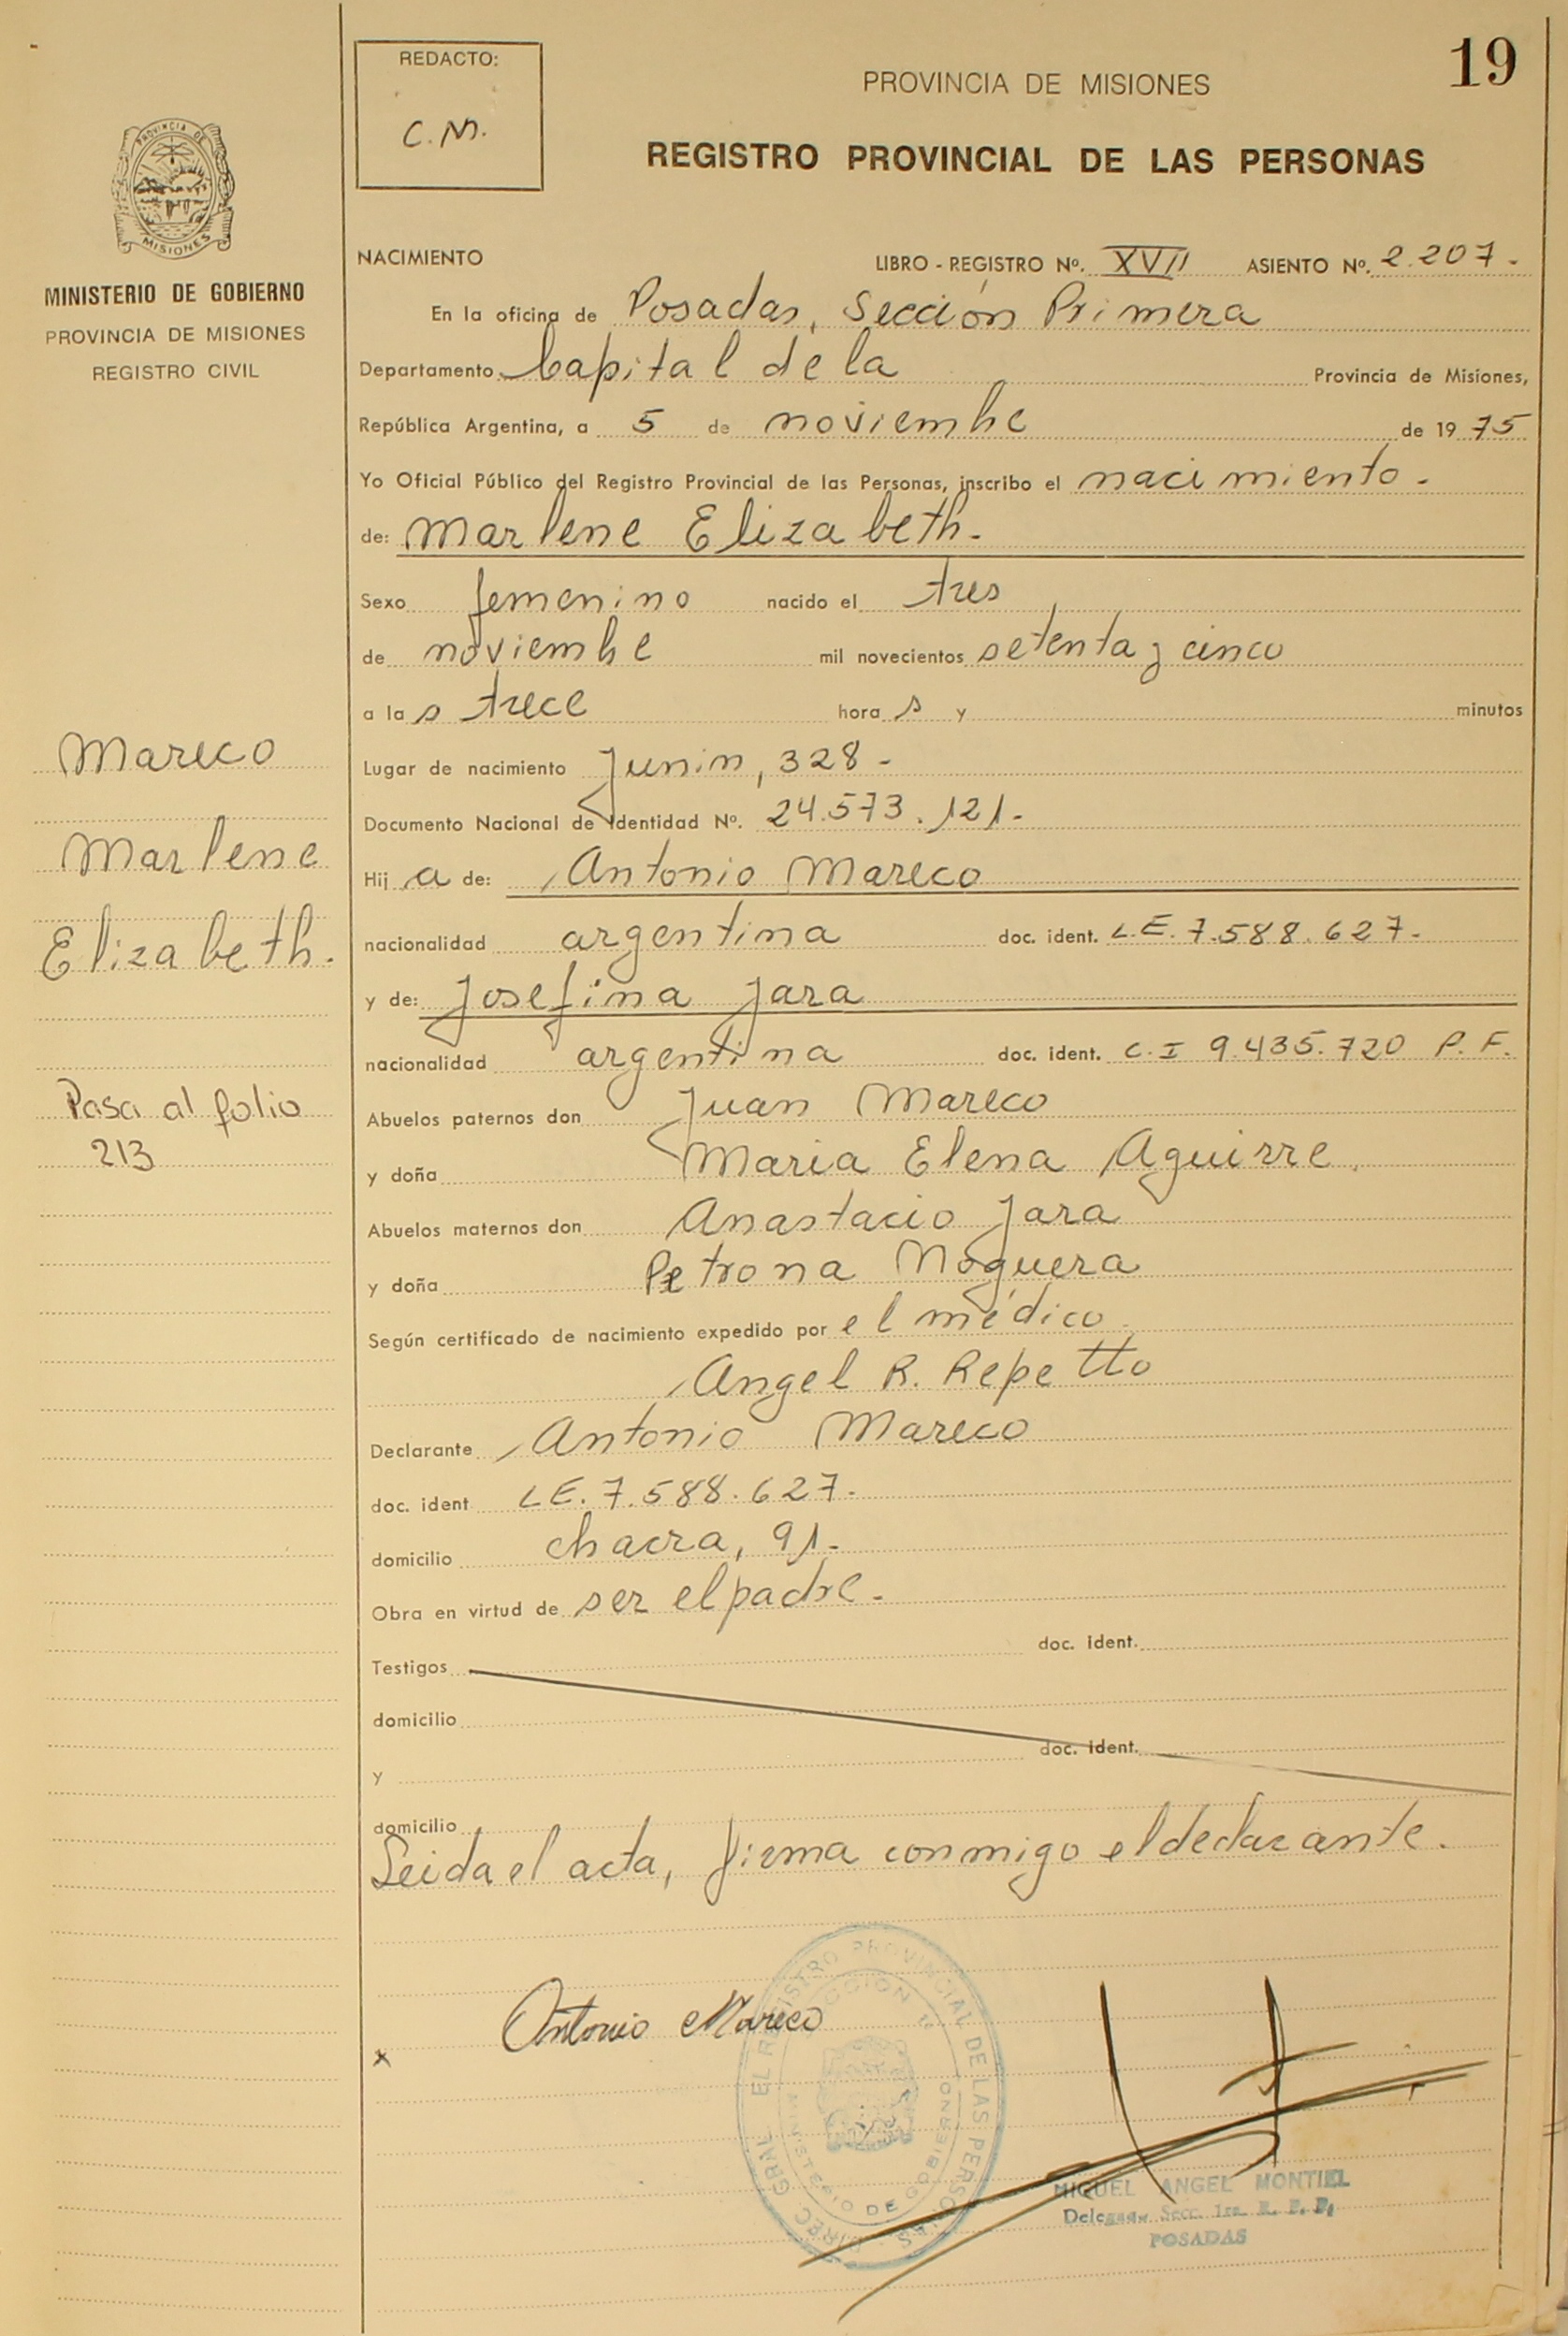 19
REDACTO:
C.M.
PROVINCIA DE MISIONES
REGISTRO PROVINCIAL DE LAS PERSONAS
PROVINCIA DE
MISIONES
MINISTERIO DE GOBIERNO
PROVINCIA DE MISIONES
REGISTRO CIVIL
NACIMIENTO LIBRO - REGISTRO Nº. XVII ASIENTO Nº. 2.207.-
En la oficina de Posadas, Sección Primera
Departamento Capital de la Provincia de Misiones,
República Argentina, a 5 de noviembre de 1975
Yo Oficial Público del Registro Provincial de las Personas, inscribo el nacimiento.-
de: Marlene Elizabeth.-
Sexo femenino nacido el tres
de noviembre mil novecientos setenta y cinco
a las trece horas y minutos
Lugar de nacimiento Junin, 328-
Documento Nacional de Identidad Nº. 24.573.121.-
Hija de: Antonio Mareco
nacionalidad argentina doc. ident. L.E. 7.588.627.-
y de: Josefina Jara
nacionalidad argentina doc. ident. C.I 9.435.720 P.F.
Abuelos paternos don Juan Mareco
y doña Maria Elena Aguirre.
Abuelos maternos don Anastacio Jara
y doña Petrona Noguera
Según certificado de nacimiento expedido por el médico
Angel R. Repetto
Declarante Antonio Mareco
doc. ident L.E. 7.588.627.-
domicilio chacra, 91.-
Obra en virtud de ser el padre.-
doc. ident.
Testigos
domicilio
doc. ident.
y
domicilio
Leida el acta, firma conmigo el declarante.-
Mareco
Marlene
Elizabeth.
Pasa al folio
213
x Antonio Mareco
DIREC. GRAL. EL REGISTRO PROVINCIAL DE LAS PERSONAS
SECCION 1ª
MINISTERIO DE GOBIERNO
MIGUEL ANGEL MONTIEL
Delegado Secc. 1ra. R. P. P.
POSADAS